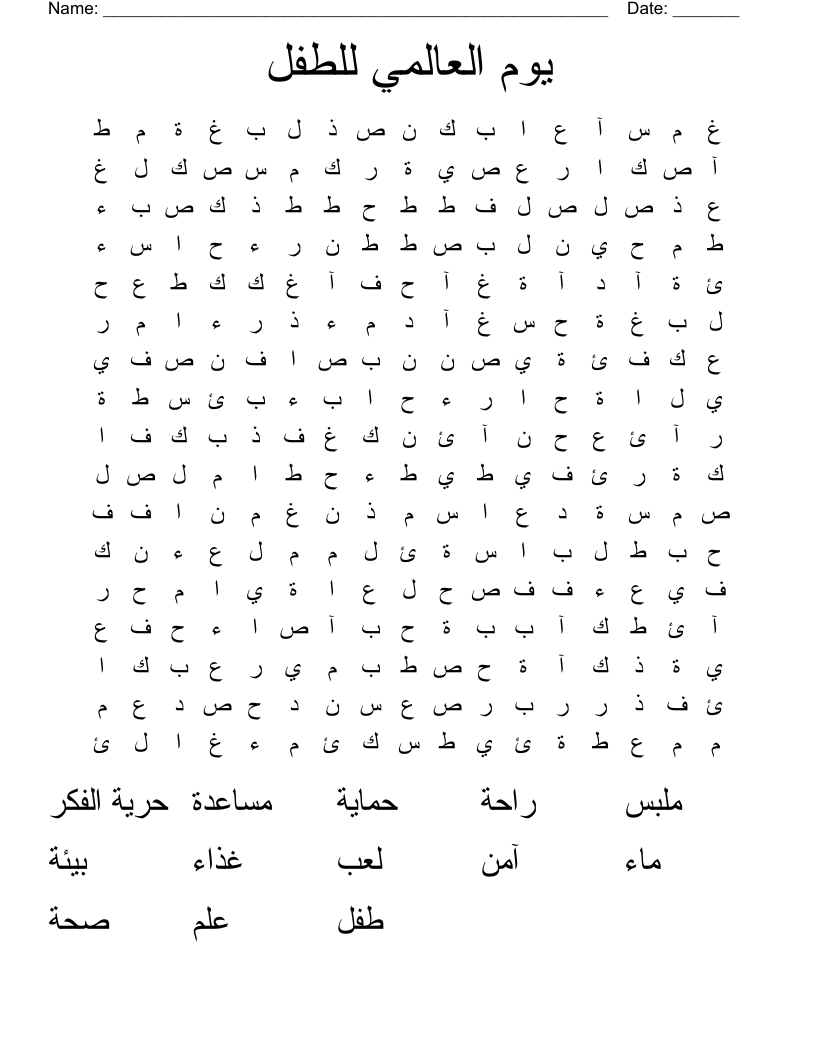 Name: _____________________________________________________ Date: _______
يوم العالمي للطفل
غ م س آ ع ا ب ك ن ص ذ ل ب غ ة م ط
آ ص ك ا ر ع ص ي ة ر ك م س ص ك ل غ
ع ذ ص ل ص ل ف ط ط ح ط ط ذ ك ص ب ء
ط م ح ي ن ل ب ص ط ط ن ر ء ح ا س ء
ئ ة آ د آ ة غ آ ح ف آ غ ك ك ط ع ح
ل ب غ ة ح س غ آ د م ء ذ ر ء ا م ر
ع ك ف ئ ة ي ص ن ن ب ص ا ف ن ص ف ي
ي ل ا ة ح ا ر ء ح ا ب ء ب ئ س ط ة
ر آ ئ ع ح ن آ ئ ن ك غ ف ذ ب ك ف ا
ك ة ر ئ ف ي ط ي ط ء ح ط ا م ل ص ل
ص م س ة د ع ا س م ذ ن غ م ن ا ف ف
ح ب ط ل ب ا س ة ئ ل م م ل ع ء ن ك
ف ي ع ء ف ف ص ح ل ع ا ة ي ا م ح ر
آ ئ ط ك آ ب ب ة ح ب آ ص ا ء ح ف ع
ي ة ذ ك آ ة ح ص ط ب م ي ر ع ب ك ا
ئ ف ذ ر ر ب ر ص ع س ن د ح ص د ع م
م م ع ط ة ئ ي ط س ك ئ م ء غ ا ل ئ
ملبس راحة حماية مساعدة حرية الفكر
ماء آمن لعب غذاء بيئة
طفل علم صحة